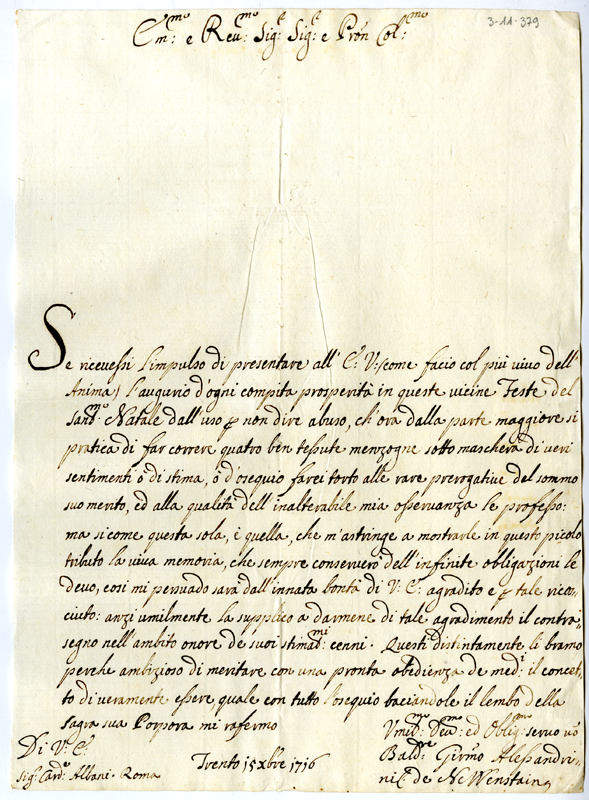 3-11-379
Em:mo e Reu:mo Sig:r Sig:r e Pron Col:mo
Se ricevessi l'impulso di presentare all' E: V: (come facio col più vivo dell'
Anima) l'augurio d'ogni compita prosperità in queste vicine Feste del
Sant:mo Natale dall'uso p non dire abuso, ch'ora dalla parte maggiore si
pratica di far correre quatro ben tessute menzogne sotto maschera di veri
sentimenti ò di stima, ò d'osequio farei torto alle rare prerogative del sommo
suo merito, ed alla qualità dell'inalterabile mia osservanza le professo:
ma si come questa sola, è quella, che m'astringe a mostrarle in questo picolo
tributo la viva memoria, che sempre conserverò dell'infinite obligazioni le
devo, così mi persuado sarà dall'innata bontà di V: E: agradito e p tale rico-
ciuto: anzi umilmente la supplico a darmene di tale agradimento il contra-
segno nell'ambito onore de suoi stimad:mi cenni. Questi distintamente li bramo
perche ambizioso di meritare con una pronta obedienza de med:i il concet-
to di veramente essere quale con tutto l'osequio baciandole il lembo della
sagra sua Porpora mi rafermo
Di V: E:
Vmil:mo Deu:mo ed Oblig:mo seruo
Sig: Card: Albani. Roma
Trento 15 xbre 1716
Bald:re Girmo Alessandri-
ni de NeWenstain